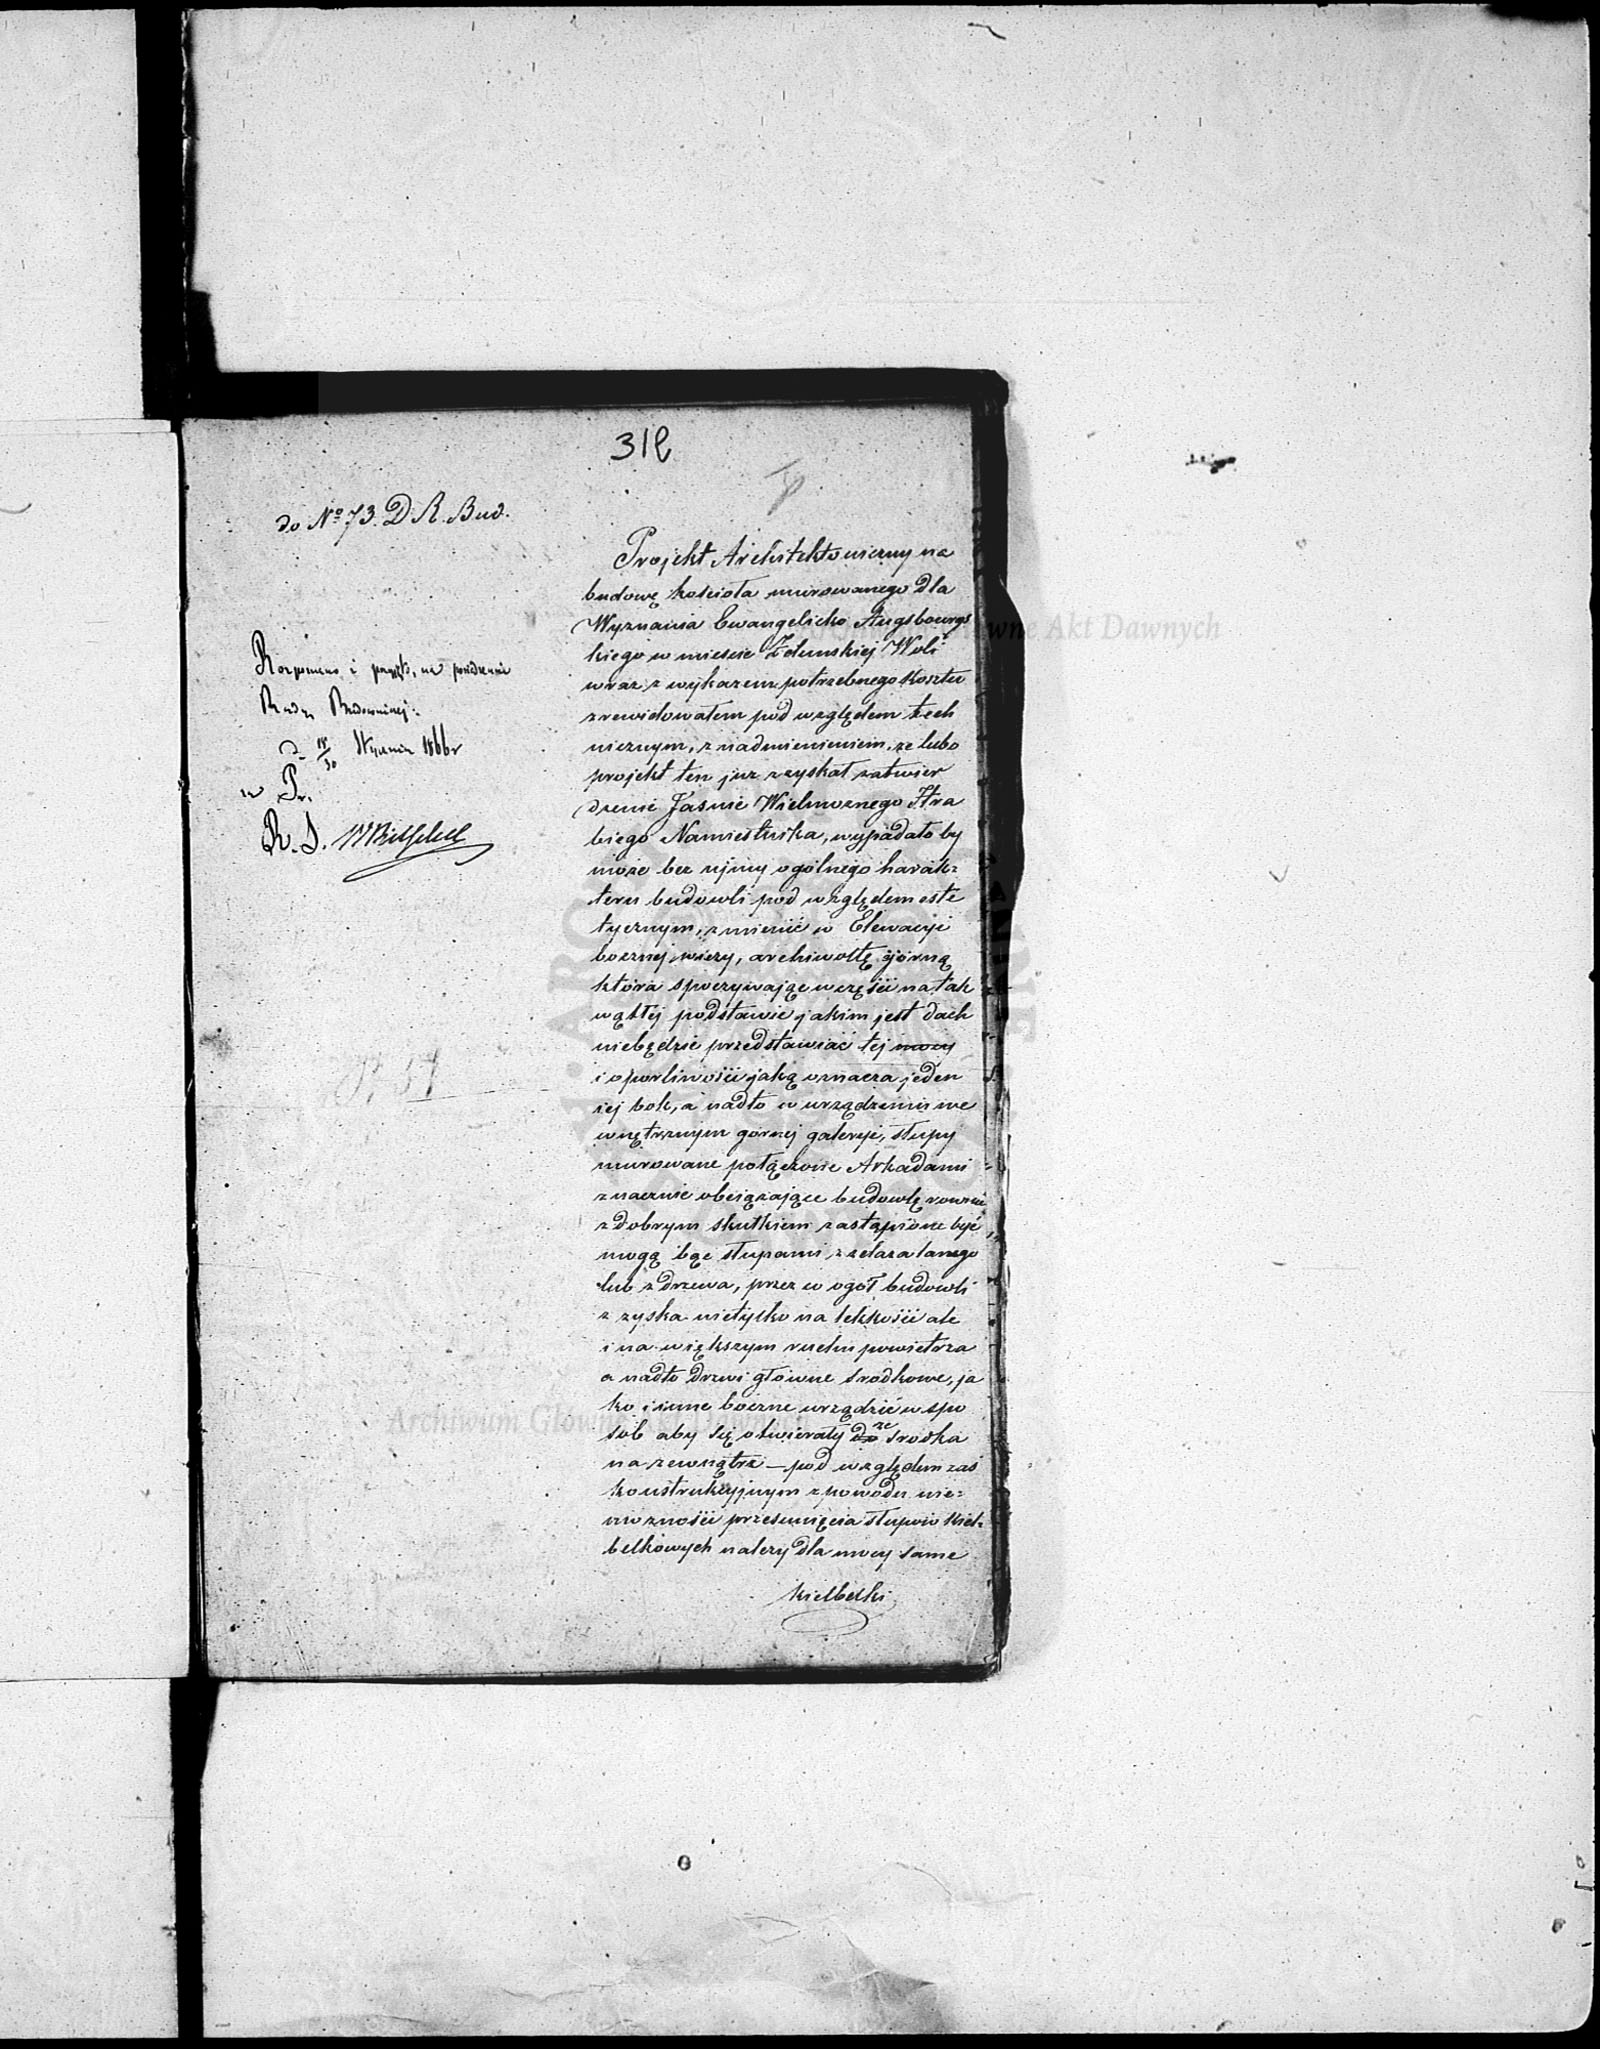 312
do Nº 73. D. R. Bud.
Rozpoznano i przyjęto, na posiedzeniu
Rady Budowniczej
d. 18/30 Stycznia 1866 r
Pr.
R. S.
Projekt Architektoniczny na
budowę kościoła murowanego dla
Wyznania Ewangelicko Augsbourgs
kiego w mieście Zdunskiej Woli
wraz z wykazem potrzebnego kosztu
zrewidowałem pod względem tech
nicznym, z nadmienieniem, że lubo
projekt ten już zyskał zatwier
dzenie Jaśnie Wielmożnego Hra
biego Namiestnika, wypadało by
może bez ujmy ogólnego harak=
teru budowli pod względem este
tycznym, zmienić w Elewacyi
bocznej wieży, archiwoltę górną
która spoczywając w części na tak
wątłej podstawie jakim jest dach
niebędzie przedstawiać tej mocy
i oporliwości jaką oznacza jeden
jej bok, a nadto w urządzeniu we
wnętrznym górnej galeryi, słupy
murowane połączone Arkadami
znacznie obciążające budowlę
z dobrym skutkiem zastąpione być
mogą bąć słupami z żelaza lanego
lub z drzewa, przez co ogół budowli
zyska nietylko na lekkości ale
i na większym ruchu powietrza
a nadto drzwi główne środkowe, ja
ko i inne boczne urządzić w spo
sób aby się otwierały do ze środka
na zewnątrz — pod względem zaś
konstrukcyjnym z powodu nie=
możności przesunięcia słupów kiel=
belkowych należy dla mocy same
kielbelki
Archiwum Główne Akt Dawnych
Archiwum Główne Akt Dawnych